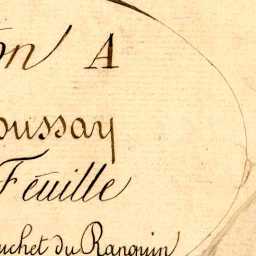 on A
oussay
Feuille
uchet du Ranquin